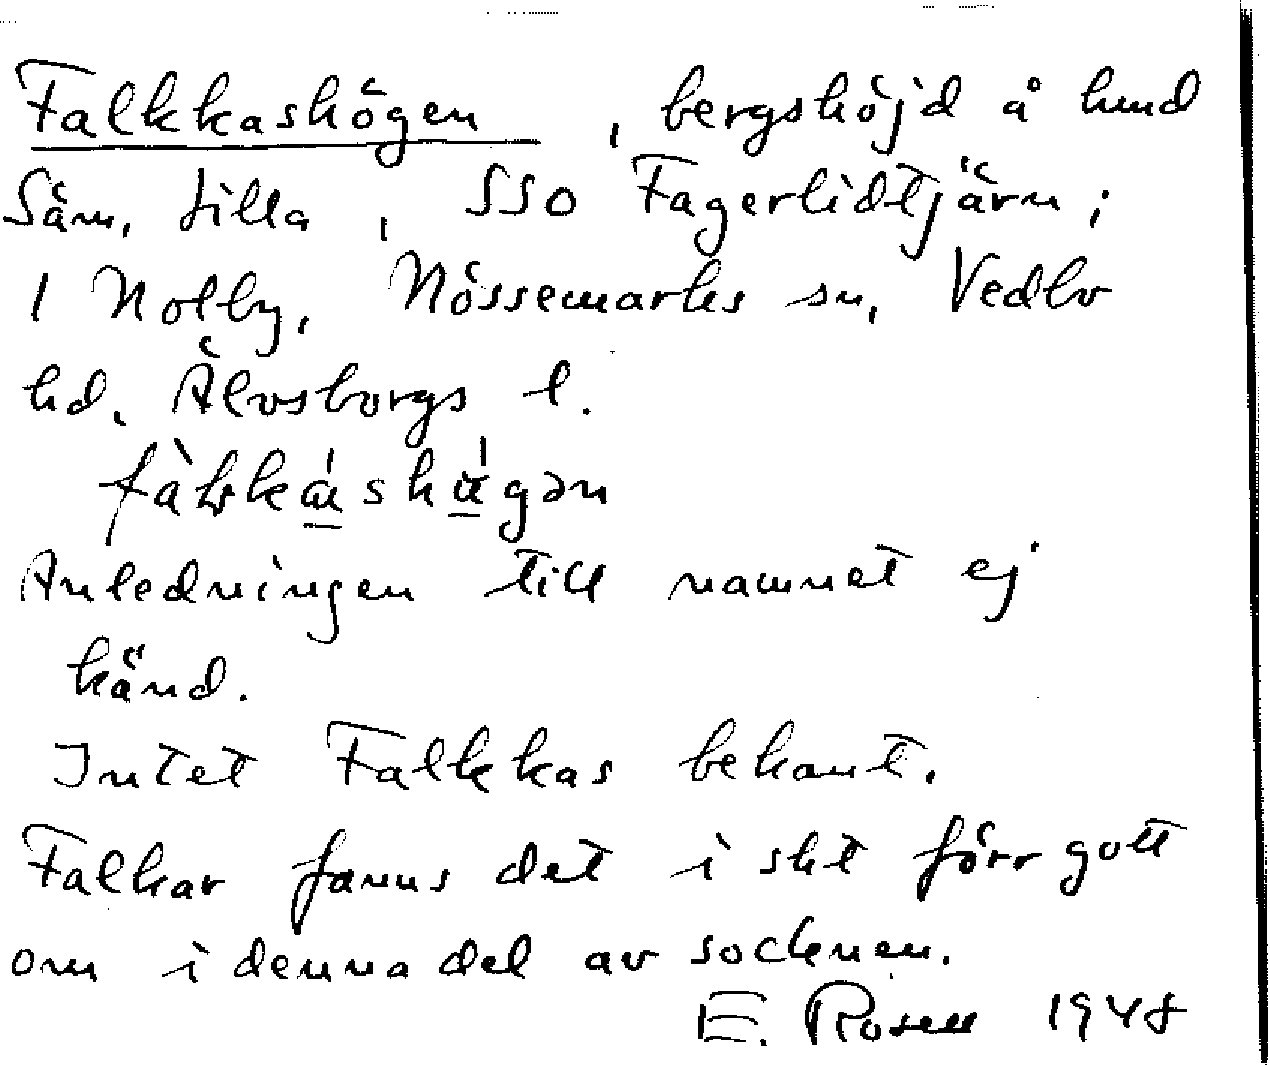 Falkkashögen, bergshöjd å hmd
Säm, Lilla, SSO Fagerlidtjärn;
1 Nolby, Nössemarks sn, Vedbo
hd. Älvsborgs l.
Anledningen till namnet ej
känd.
Intet Falkkas bekant.
Falkar fanns det i skt förr gott
om i denna del av socknen.
E. Rosell 1948